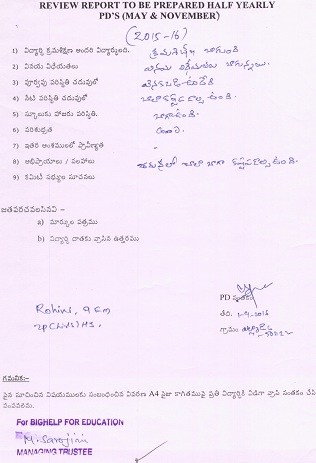 REVIEW REPORT TO BE PREPARED HALF YEARLY
PD'S (MAY & NOVEMBER)
(2015-16)
1) విద్యార్థి క్రమశిక్షణ అందరి విద్యార్థులది. క్రమశిక్షణ బాగుంది
2) వినయ విధేయతలు వినయ విధేయతలు బాగున్నాయి.
3) పూర్వపు పరిస్థితి చదువులో వెనకబడి ఉండేది
4) నేటి పరిస్థితి చదువులో చాలా ఉంది.
5) స్కూలుకు హాజరు పరిస్థితి. బాగా ఉంది.
6) పరిశుభ్రత
7) ఇతర అంశములలో ప్రావీణ్యత -
8) అభిప్రాయాలు / సలహాలు చదువులో చాలా బాగా ఉంది.
9) కమిటీ సభ్యుల సూచనలు
జతపరచవలసినవి –
a) మార్కుల పత్రము
b) విద్యార్థి దాతకు వ్రాసిన ఉత్తరము
Rohini, 9 EM
ZP HS.
PD సంతకం
తేది. 1-9-2016
గ్రామం
గమనిక:-
పైన సూచించిన విషయములకు సంబంధించిన వివరణ A4 సైజు కాగితముపై ప్రతి విద్యార్థికి విడిగా వ్రాసి సంతకం చేసి
పంపవలెను.
For BIGHELP FOR EDUCATION
M. Sarojini
MANAGING TRUSTEE